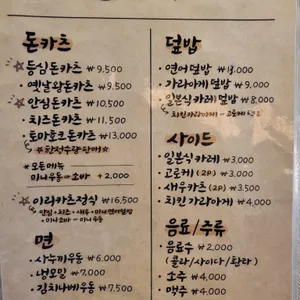 돈카츠
등심돈카츠 ₩9,500
옛날왕돈카츠 ₩9,500
안심돈카츠 ₩10,500
치즈돈카츠 ₩11,500
토마호크돈카츠 ₩13,000
*한정수량 판매*
*모든메뉴
미니우동→소바 +2,000
이리카츠정식 ₩16,500
안심+치즈+새우+미니연어덮밥
미니소바→미니우동
면
사누끼우동 ₩6,000
냉모밀 ₩7,000
김치나베우동 ₩7,500
덮밥
연어덮밥 ₩13,000
가라아게덮밥 ₩9,000
일본식카레덮밥 ₩8,000
치킨가라아게 고로케
사이드
일본식카레 ₩3,000
고로케 (2P) ₩3,500
새우카츠 (2P) ₩3,500
치킨가라아게 ₩4,000
음료/주류
음료수 ₩2,000
(콜라/사이다/환타)
소주 ₩4,000
맥주 ₩4,000